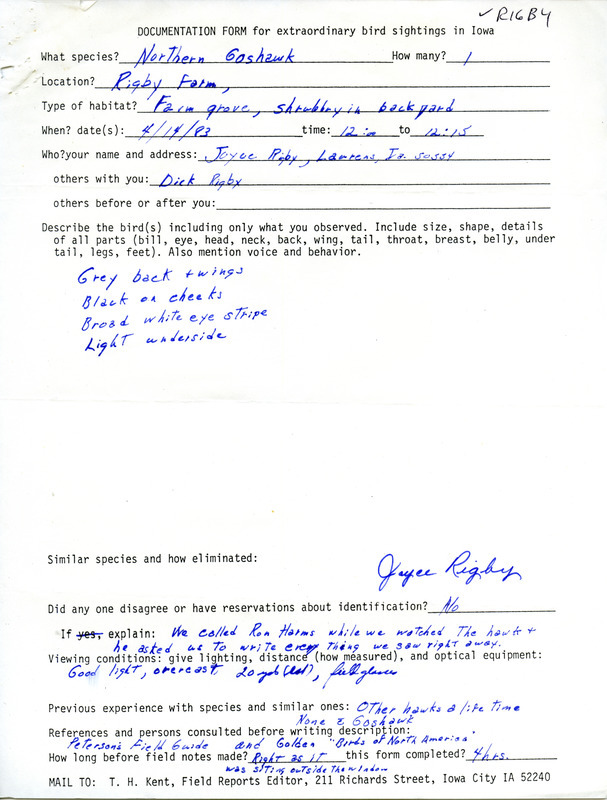 ✓ RIGBY
DOCUMENTATION FORM for extraordinary bird sightings in Iowa
What species? Northern Goshawk How many? 1
Location? Rigby Farm,
Type of habitat? Farm grove, shrubbry in backyard
When? date(s): 4/14/83 time: 12:00 to 12:15
Who?your name and address: Joyce Rigby, Laurens, Ia. 50554
others with you: Dick Rigby
others before or after you:
Describe the bird(s) including only what you observed. Include size, shape, details
of all parts (bill, eye, head, neck, back, wing, tail, throat, breast, belly, under
tail, legs, feet). Also mention voice and behavior.
Grey back + wings
Black on cheeks
Broad white eye stripe
Light underside
Similar species and how eliminated:
Joyce Rigby
Did any one disagree or have reservations about identification? No
If yes, explain: We called Ron Harms while we watched The hawk +
he asked us to write every thing we saw right away.
Viewing conditions: give lighting, distance (how measured), and optical equipment:
Good light, overcast, 20 yds (est), field glasses
Previous experience with species and similar ones: Other hawks a life time
None & Goshawk
References and persons consulted before writing description:
Peterson's Field Guide and Golden "Birds of North America"
How long before field notes made? Right as it this form completed? 4 hrs.
was siting outside the window
MAIL TO: T. H. Kent, Field Reports Editor, 211 Richards Street, Iowa City IA 52240